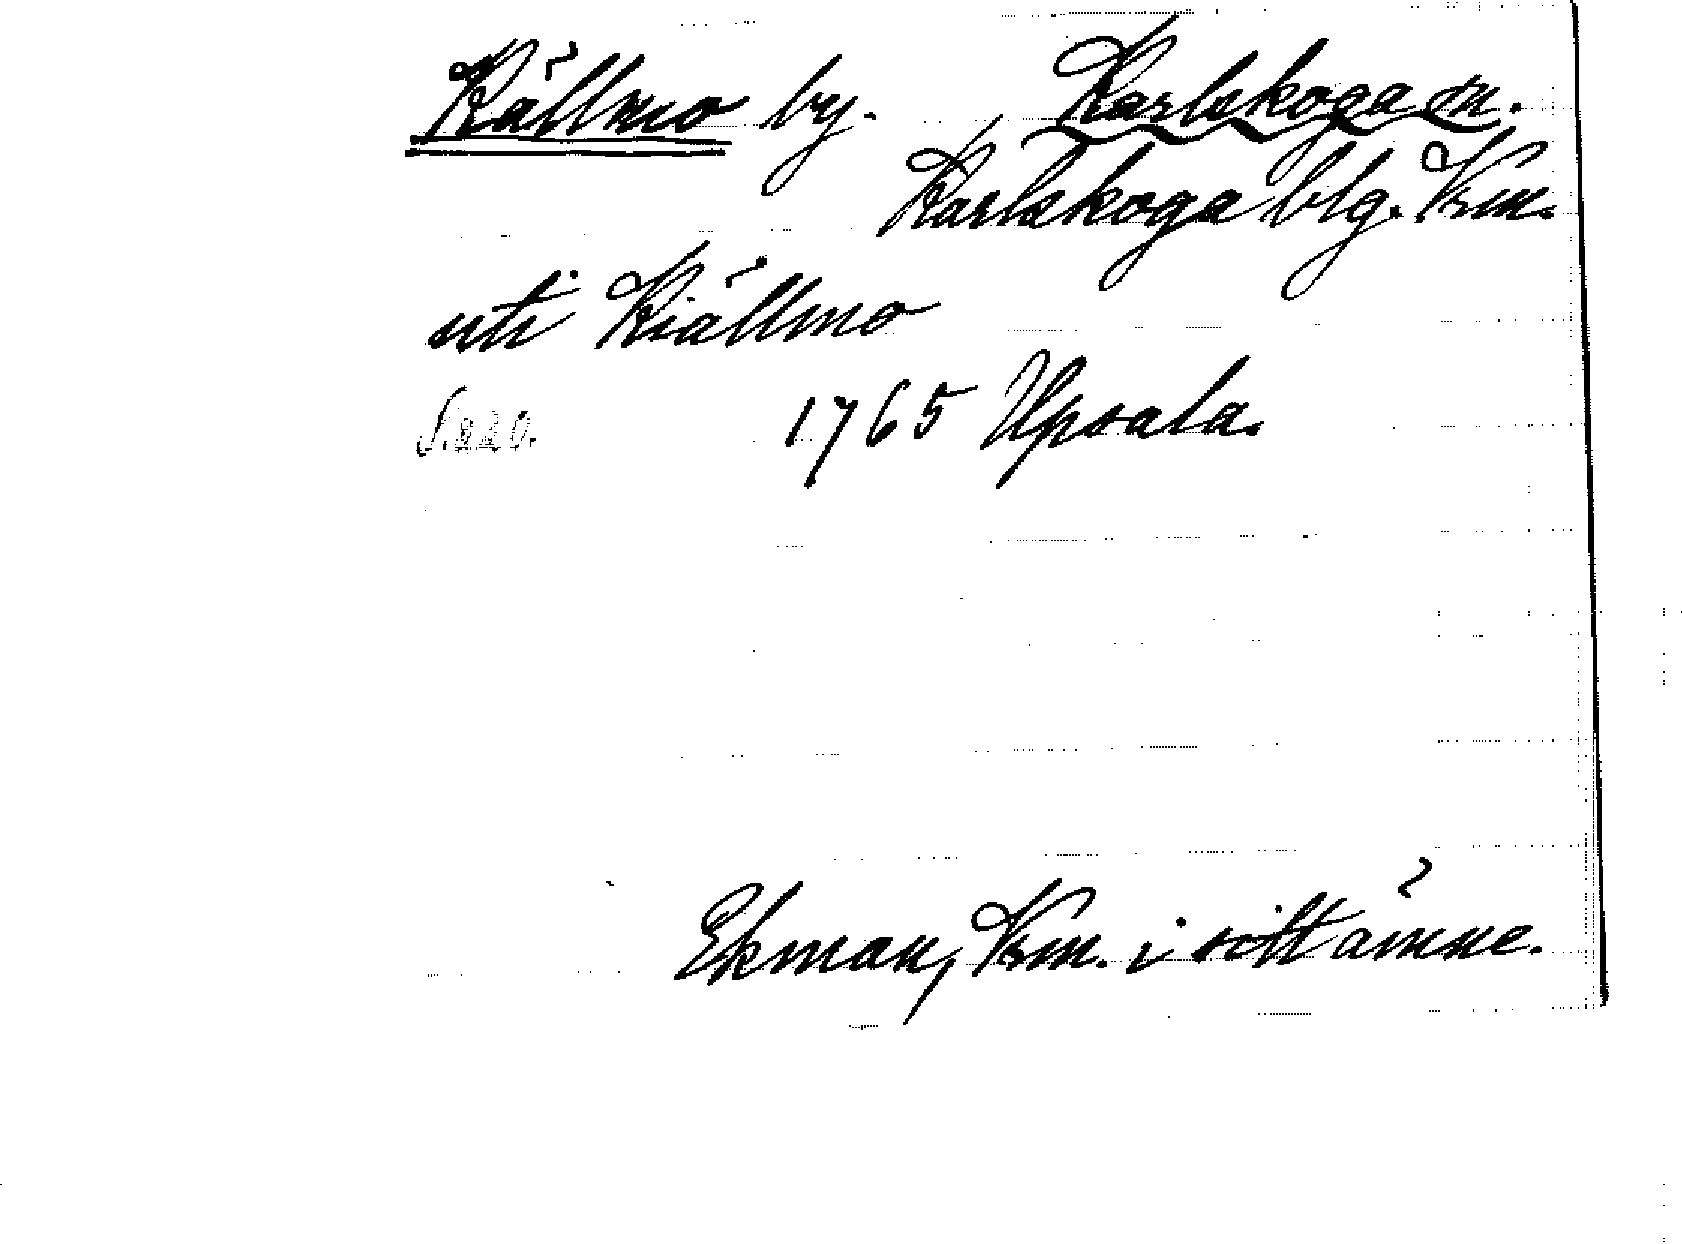 Källmo by. Karlskoga sn.
Karlskoga blg. Krm.
uti Kiällmo
1765 Upsala.
Ekman, Krm. i sitt ämne.